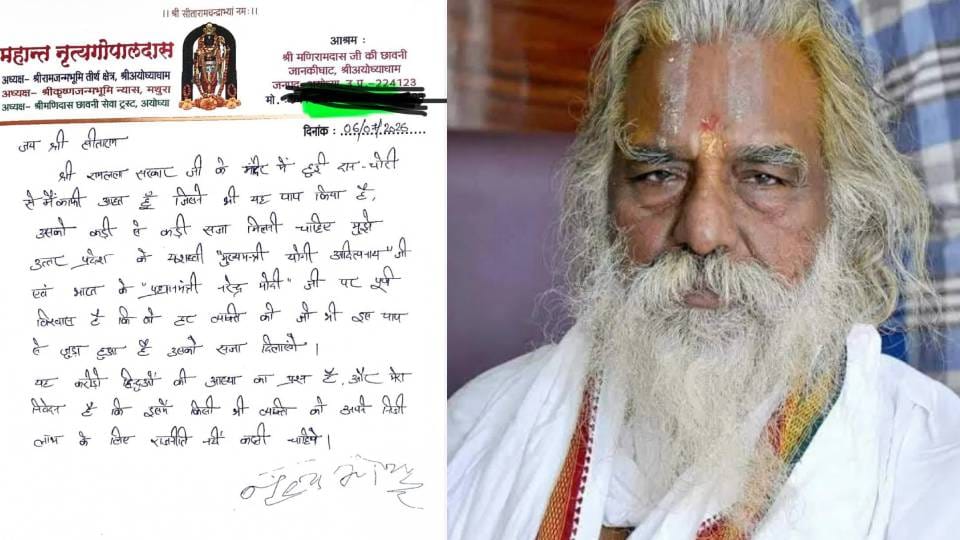 ।। श्री सीतारामचन्द्राभ्यां नमः ।।
महान्त नृत्यगोपालदास
अध्यक्ष- श्रीरामजन्मभूमि तीर्थ क्षेत्र, श्रीअयोध्याधाम
अध्यक्ष- श्रीकृष्णजन्मभूमि न्यास, मथुरा
अध्यक्ष- श्रीमणिदास छावनी सेवा ट्रस्ट, अयोध्या
आश्रम :
श्री मणिरामदास जी की छावनी
जानकीघाट, श्रीअयोध्याधाम
जनपद- अयोध्या उ.प्र.-224123
मो.
दिनांक : 06/07/2026
जय श्री सीताराम
श्री रामलला सरकार जी के मंदिर में हुई दान-चोरी
से मैं काफी आहत हूँ जिसने भी यह पाप किया है,
उसको कड़ी से कड़ी सजा मिलनी चाहिए मुझे
उत्तर प्रदेश के यशस्वी "मुख्यमन्त्री योगी आदित्यनाथ" जी
एवं भारत के "प्रधानमंत्री नरेन्द्र मोदी" जी पर पूर्ण
विश्वास है कि वो हर व्यक्ति को जो भी इस पाप
से जुड़ा हुआ है उसको सजा दिलाएंगे।
यह करोड़ो हिन्दुओं की आस्था का प्रश्न है, और मेरा
निवेदन है कि इसमें किसी भी व्यक्ति को अपने निजी
लाभ के लिए राजनीति नहीं करनी चाहिये।